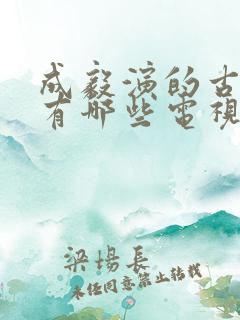 成毅演的古
有哪些电视
梁場長
未经同意禁止转载